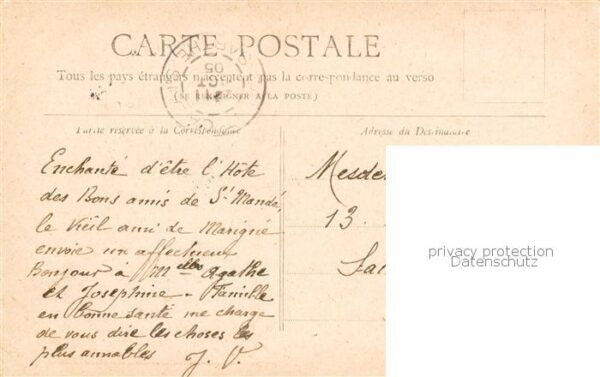 CARTE POSTALE
Tous les pays étrangers n'acceptent pas la correspondance au verso
(SE RENSEIGNER A LA POSTE)
Partie réservée à la Correspondance
Adresse du Destinataire
Enchanté d'être l'Hôte
des Bons amis de St Mandé,
le Vieil ami de Marigné
envoie un affectueux
Bonjour à Melles Agathe
et Joséphine - Famille
en bonne santé me charge
de vous dire les choses les
plus aimables J. V.
13.
privacy protection
Datenschutz